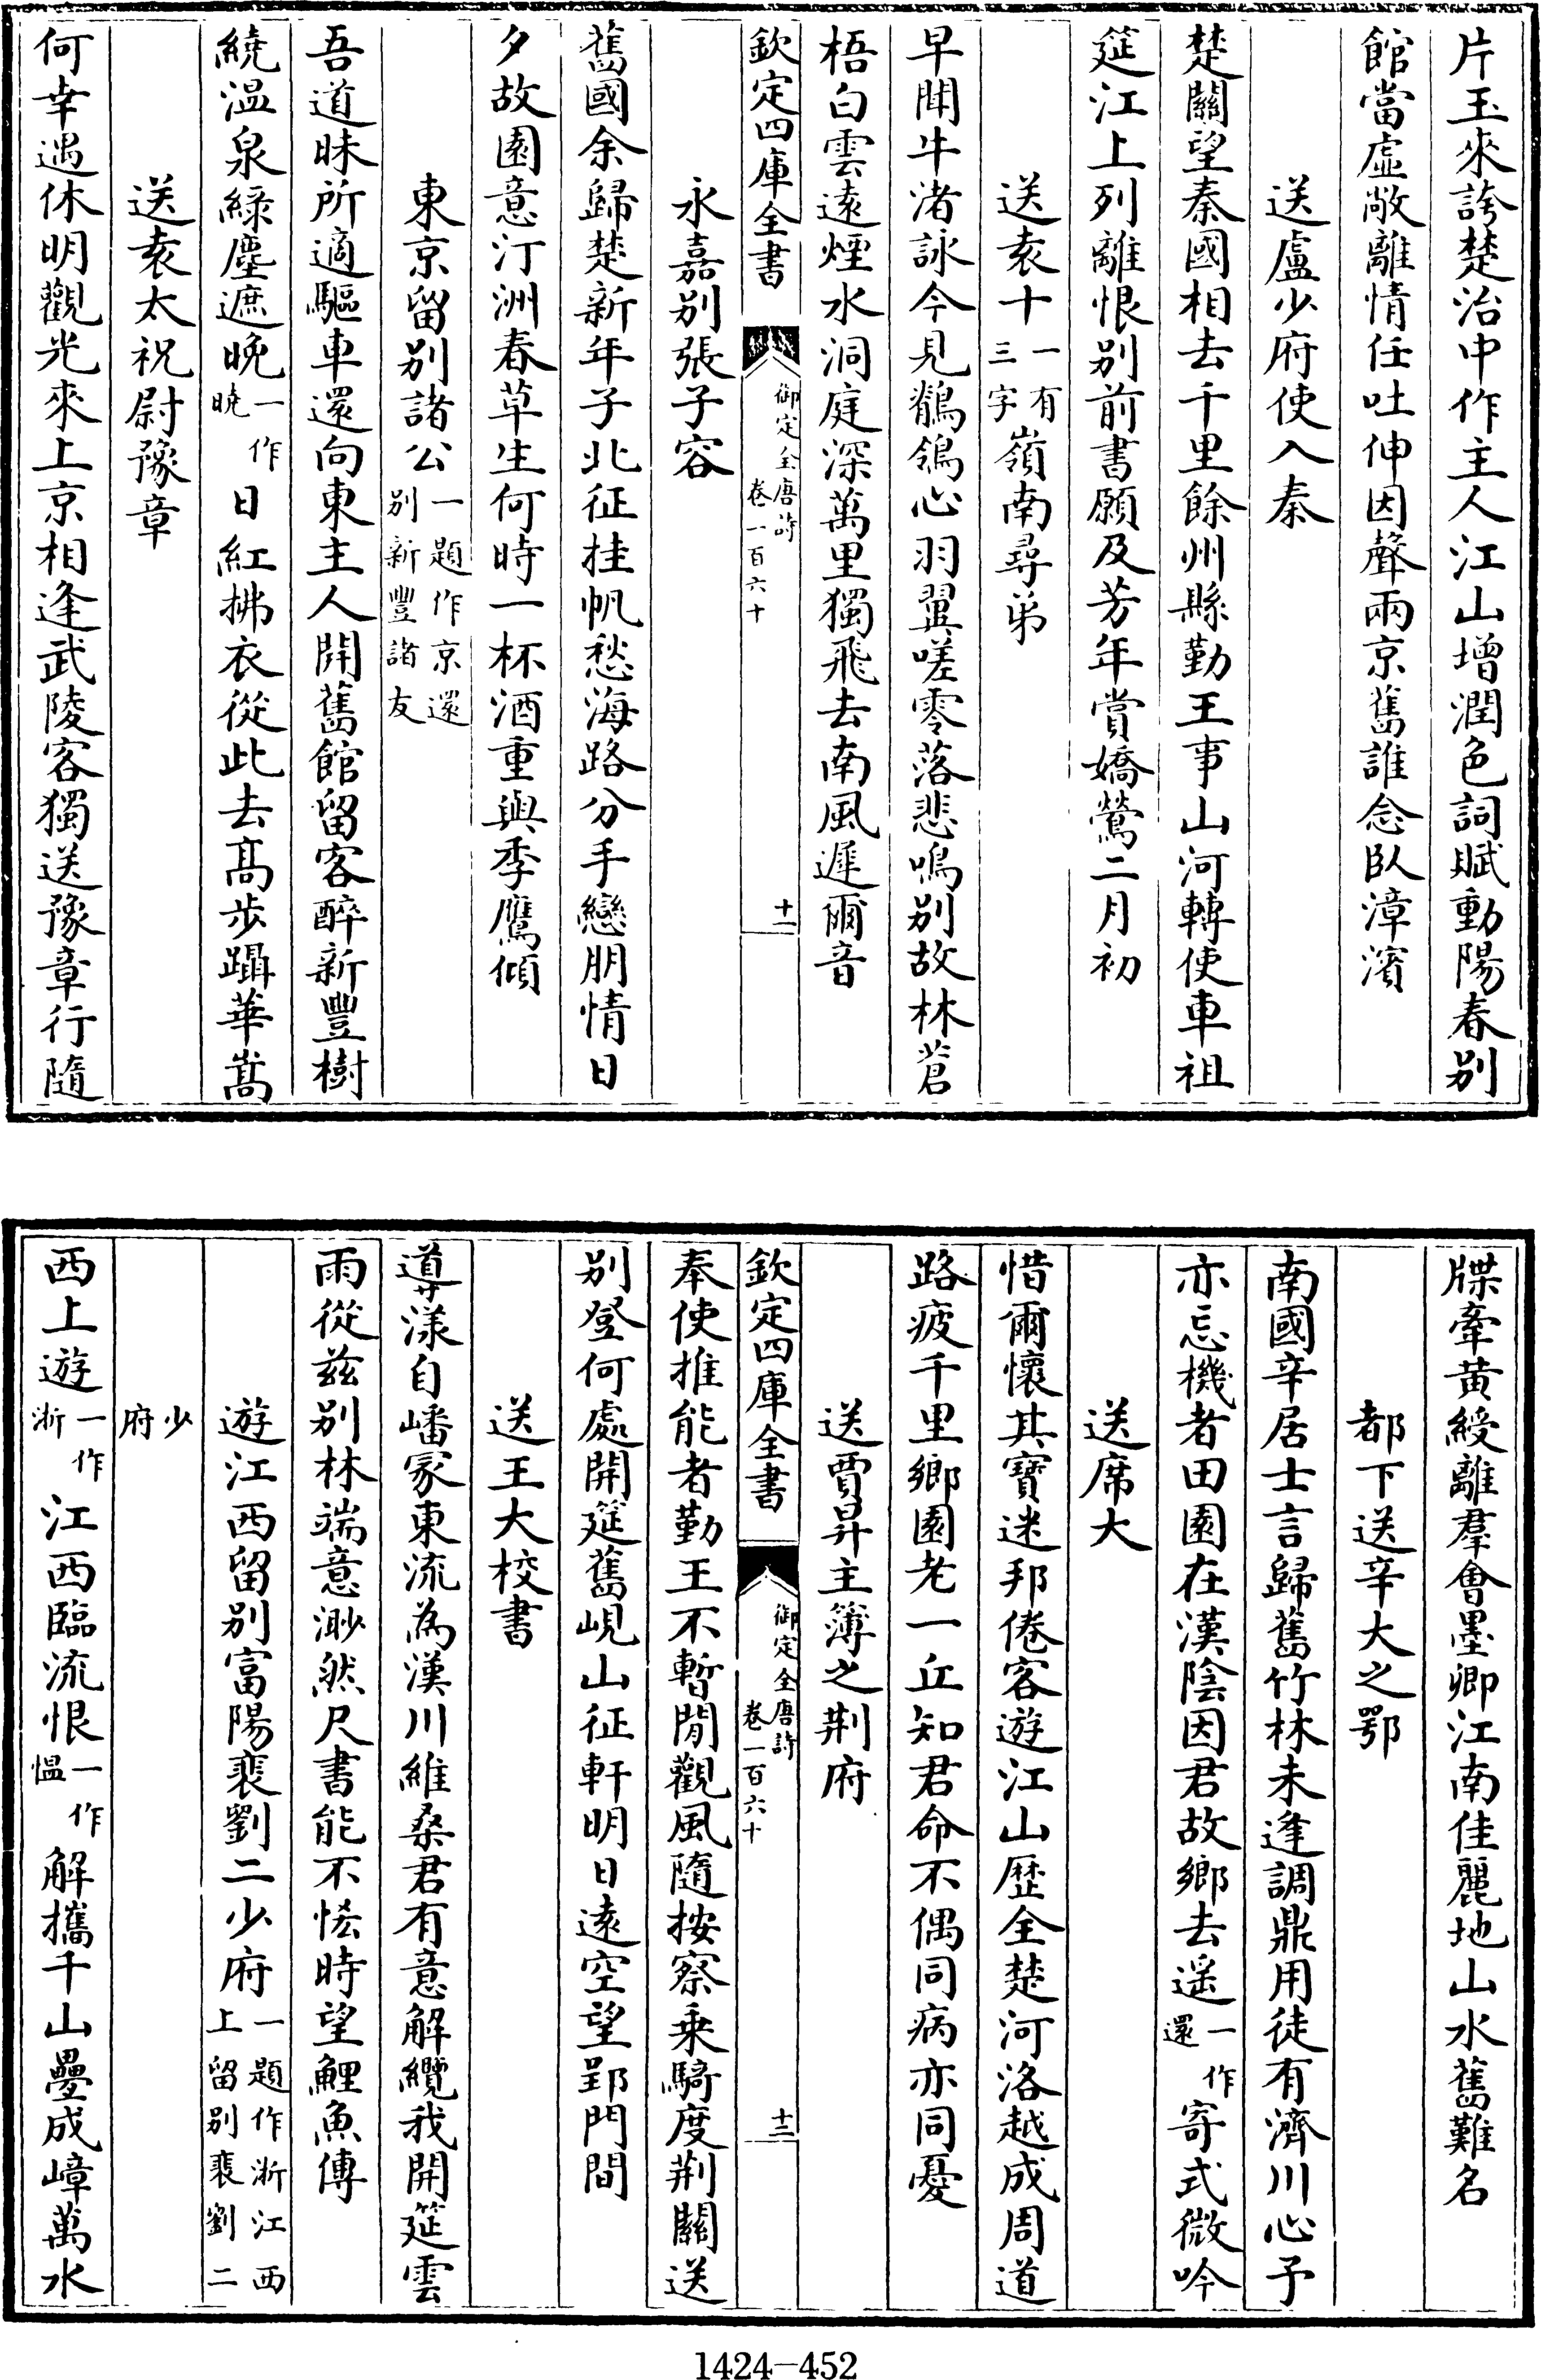 片玉來誇楚治中作主人江山增潤色詞賦動陽春别
館當虛敞離情任吐伸因聲兩京舊誰念臥漳濱
送盧少府使入秦
楚關望秦國相去千里餘州縣勤王事山河轉使車祖
筵江上列離恨别前書願及芳年賞嬌鶯二月初
送袁十一有三字嶺南尋弟
早聞牛渚詠今見鶺鴒心羽翼嗟零落悲鳴别故林蒼
梧白雲遠煙水洞庭深萬里獨飛去南風遲爾音
欽定四庫全書 御定全唐詩 卷一百六十 十一
永嘉别張子容
舊國余歸楚新年子北征挂帆愁海路分手戀朋情日
夕故園意汀洲春草生何時一杯酒重與季鷹傾
東京留别諸公一題作京還别新豐諸友
吾道昧所適驅車還向東主人開舊館留客醉新豐樹
繞温泉緑塵遮晚一作曉日紅拂衣從此去髙步躡華嵩
送袁太祝尉豫章
何幸遇休明觀光來上京相逢武陵客獨送豫章行隨
牒牽黄綬離羣會墨卿江南佳麗地山水舊難名
都下送辛大之鄂
南國辛居士言歸舊竹林未逢調鼎用徒有濟川心予
亦忘機者田園在漢陰因君故鄉去遥一作還寄式微吟
送席大
惜爾懷其寶迷邦倦客遊江山歴全楚河洛越成周道
路疲千里鄉園老一丘知君命不偶同病亦同憂
送賈昇主簿之荆府
奉使推能者勤王不暫閒觀風隨按察乗騎度荆關送
欽定四庫全書 御定全唐詩 卷一百六十 十二
别登何處開筵舊峴山征軒明日遠空望郢門間
送王大校書
導漾自嶓冢東流為漢川維桑君有意解纜我開筵雲
雨從兹别林端意渺然尺書能不恡時望鯉魚傳
遊江西留别富陽裴劉二少府一題作浙江西上留别裴劉二
少府
西上遊一作浙江西臨流恨一作愠解攜千山疊成嶂萬水
1424-452